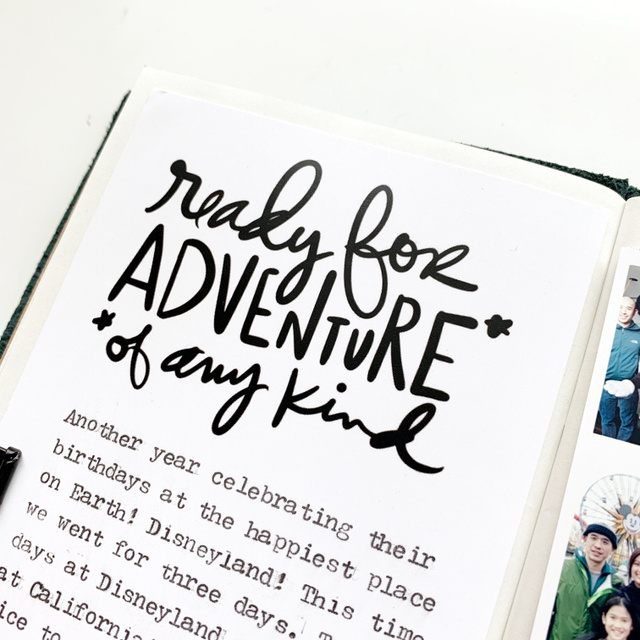 ready for
ADVENTURE*
*of any kind
Another year celebrating their
birthdays at the happiest place
on Earth! Disneyland! This time
we went for three days.
days at Disneyland
at California
to